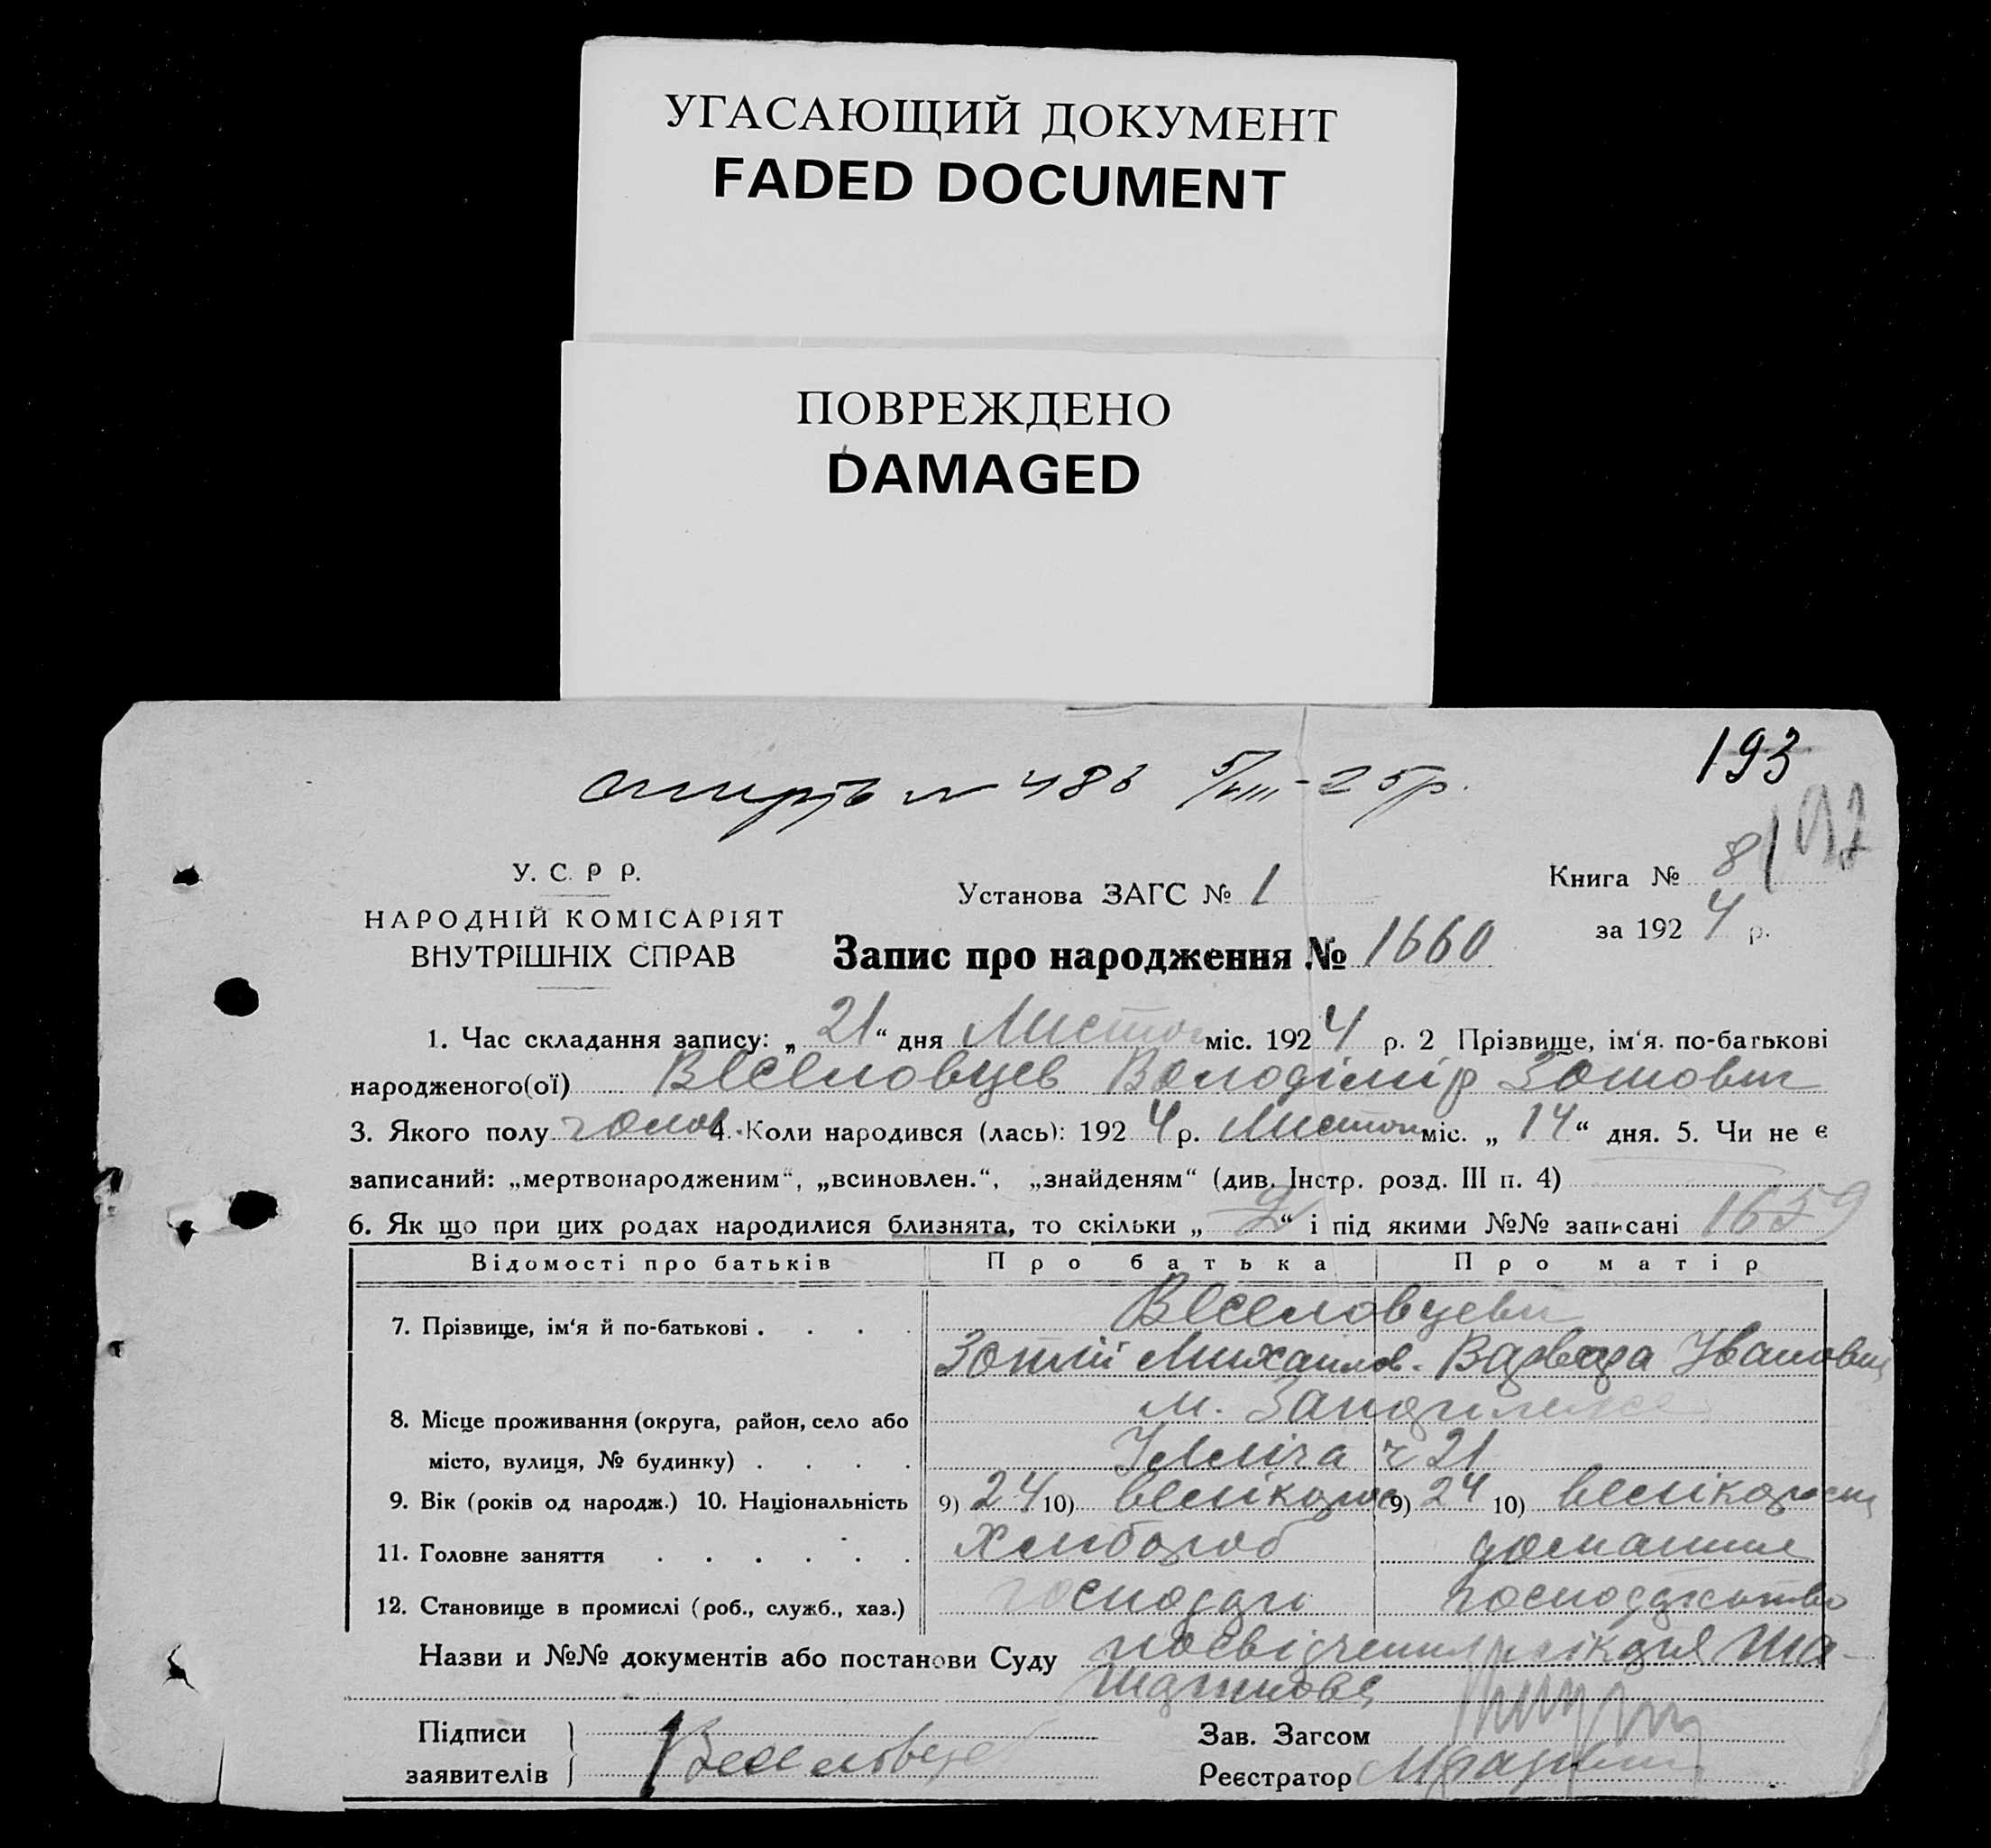 УГАСАЮЩИЙ ДОКУМЕНТ
FADED DOCUMENT
ПОВРЕЖДЕНО
DAMAGED
193
смерть № 486 5/VIII-25р.
192
У. С. Р. Р.
НАРОДНІЙ КОМІСАРІЯТ
ВНУТРІШНІХ СПРАВ
Установа ЗАГС № 1
Книга № 8
за 1924 р.
Запис про народження № 1660
1. Час складання запису: „21“ дня Листоп міс. 1924 р. 2 Прізвище, ім‘я. по-батькові
народженого(ої) Веселовцев Володімір Зотович
3. Якого полу чолов. 4. Коли народився (лась): 1924 р. Листоп міс. „14“ дня. 5. Чи не є
записаний: „мертвонародженим“, „всиновлен.“, „знайденям“ (див. Інстр. розд. III п. 4)
6. Як що при цих родах народилися близнята, то скільки „2“ і під якими №№ записані 1659
Відомості про батьків Про батька Про матір
7. Прізвище, ім‘я й по-батькові . . . . Веселовцеви
Зотій Михаилов. Варвара Івановна
8. Місце проживання (округа, район, село або м. Запоріжже
місто, вулиця, № будинку) . . . . Ілліча ч 21
9. Вік (років од народж.) 10. Національність 9) 24 10) велікорос 9) 24 10) велікоросп
11. Головне заняття . . . . . . хлібороб домашнє
12. Становище в промислі (роб., служб., хаз.) господарі господарство
Назви и №№ документів або постанови Суду посвідчення лікаря Ша-
Підписи
заявителів
Веселовцев
Зав. Загсом
Реєстратор